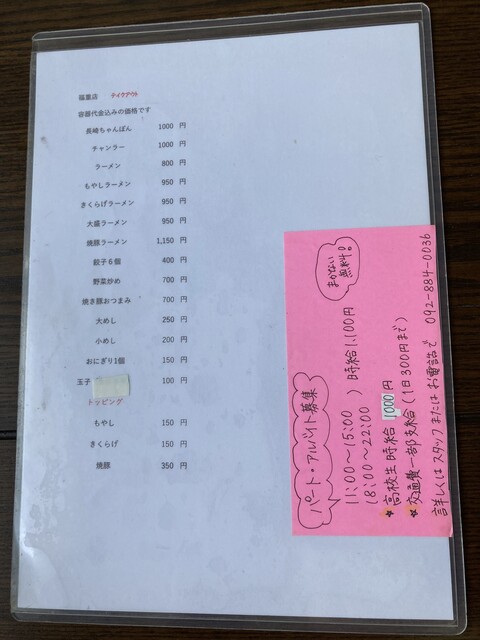 福重店 テイクアウト
容器代金込みの価格です
長崎ちゃんぽん 1000 円
チャンラー 1000 円
ラーメン 800 円
もやしラーメン 950 円
きくらげラーメン 950 円
大盛ラーメン 950 円
焼豚ラーメン 1,150 円
餃子6個 400 円
野菜炒め 700 円
焼き豚おつまみ 700 円
大めし 250 円
小めし 200 円
おにぎり1個 150 円
玉子 100 円
トッピング
もやし 150 円
きくらげ 150 円
焼豚 350 円
パート・アルバイト募集
まかない無料!
11:00〜15:00
18:00〜22:00 ) 時給1,100円
☆高校生 時給 1000円
☆交通費一部支給(1日300円まで)
詳しくはスタッフまたはお電話で 092-884-0036